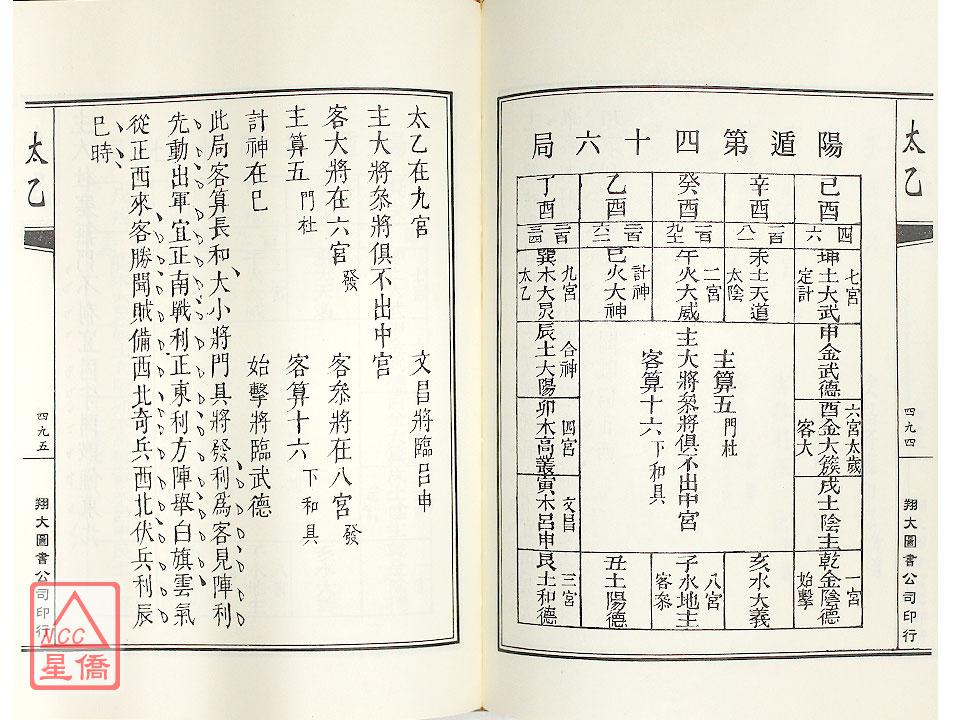 太乙
四九四
翔大圖書公司印行
陽遁第四十六局
己酉
辛酉
癸酉
乙酉
丁酉
四六
七宮
坤土大武
定計
未土天道
太陰
二宮
午火大威
計神
巳火大神
九宮
巽木大炅
太乙
申金武德
六宮太歲
酉金大簇
客大
戌土陰主
一宮
乾金陰德
始擊
主算五門杜
主大將參將俱不出中宮
客算十六下和具
合神
辰土太陽
四宮
卯木高叢
文昌
寅木呂申
三宮
艮土和德
亥水大義
八宮
子水地主
客參
丑土陽德
太乙在九宮 文昌將臨呂申
主大將參將俱不出中宮
客大將在六宮發 客參將在八宮發
主算五門杜 客算十六下和具
計神在巳 始擊將臨武德
此局客算長和大小將門具將發利為客見陣利
先動出軍宜正南戰利正東利方陣舉白旗雲氣
從正西來客勝聞賊備西北奇兵西北伏兵利辰
巳時
太乙
四九五
翔大圖書公司印行
NCC
星僑